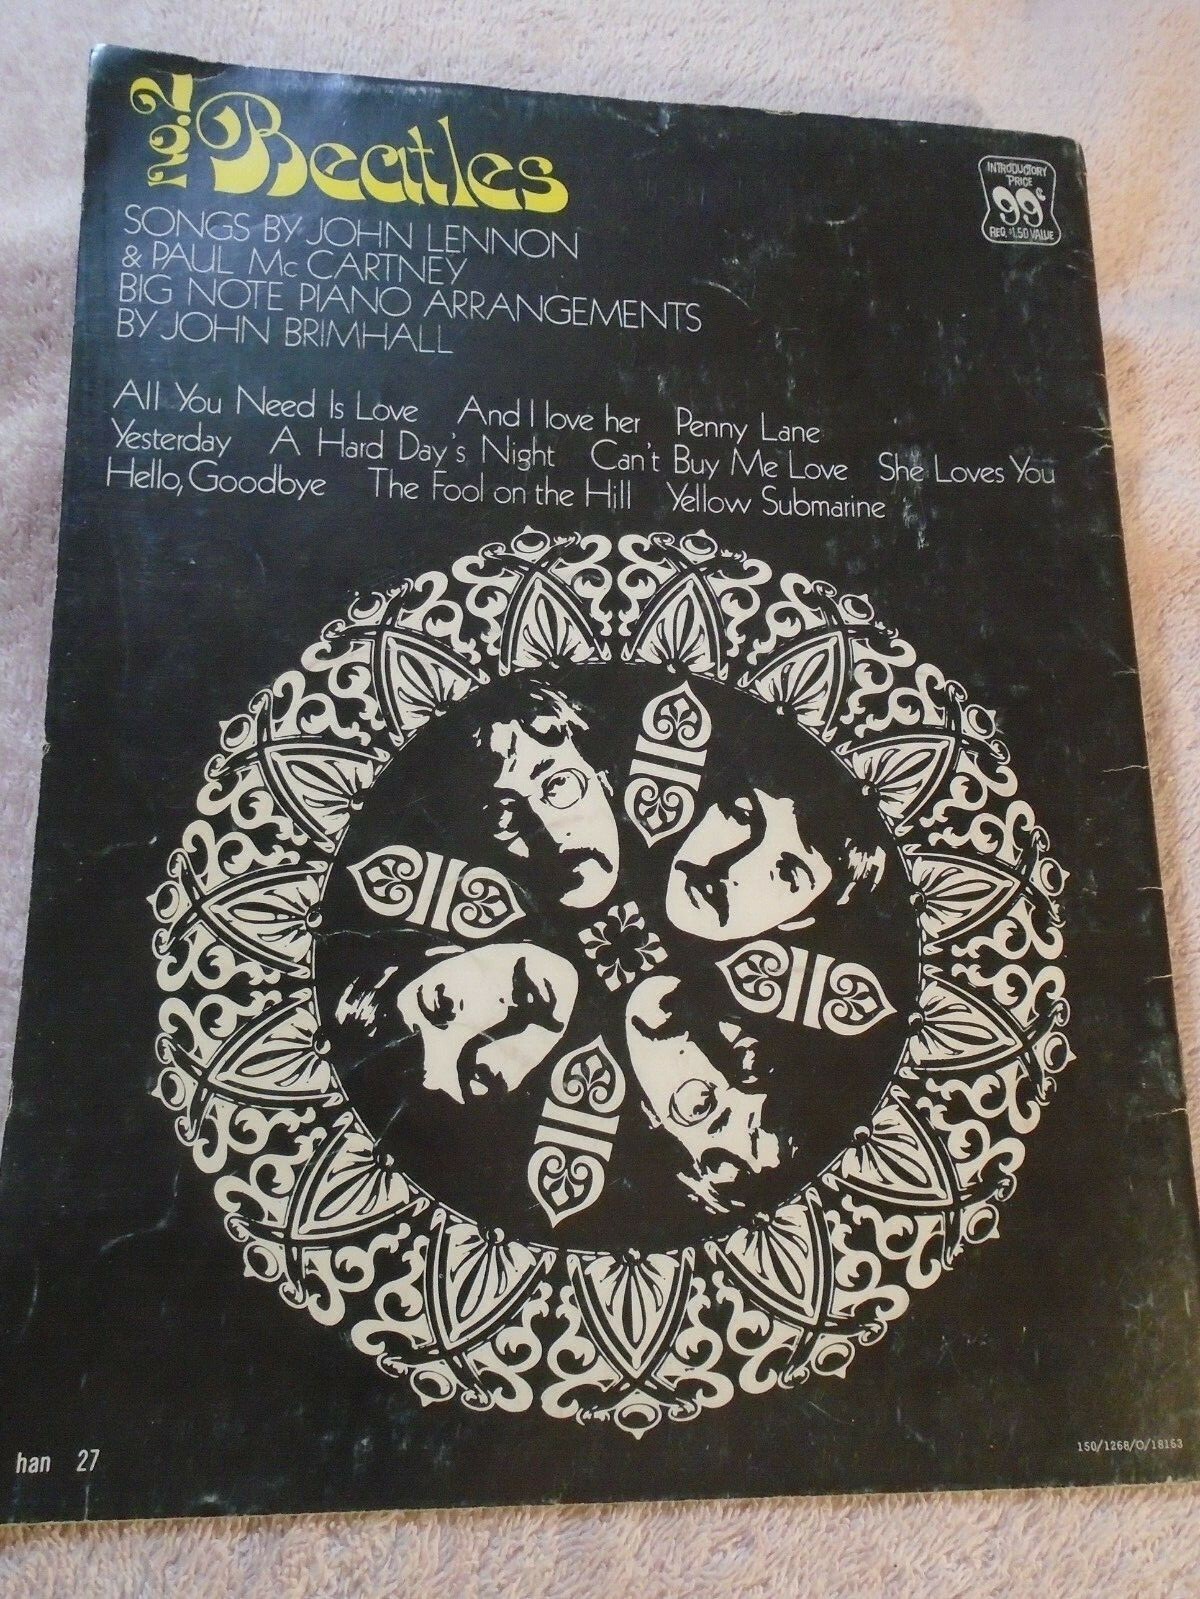 no.2 Beatles
SONGS BY JOHN LENNON
& PAUL Mc CARTNEY
BIG NOTE PIANO ARRANGEMENTS
BY JOHN BRIMHALL
INTRODUCTORY
PRICE
99¢
REG. $1.50 VALUE
All You Need Is Love And I love her Penny Lane
Yesterday A Hard Day's Night Can't Buy Me Love She Loves You
Hello, Goodbye The Fool on the Hill Yellow Submarine
han 27
150/1268/O/18163